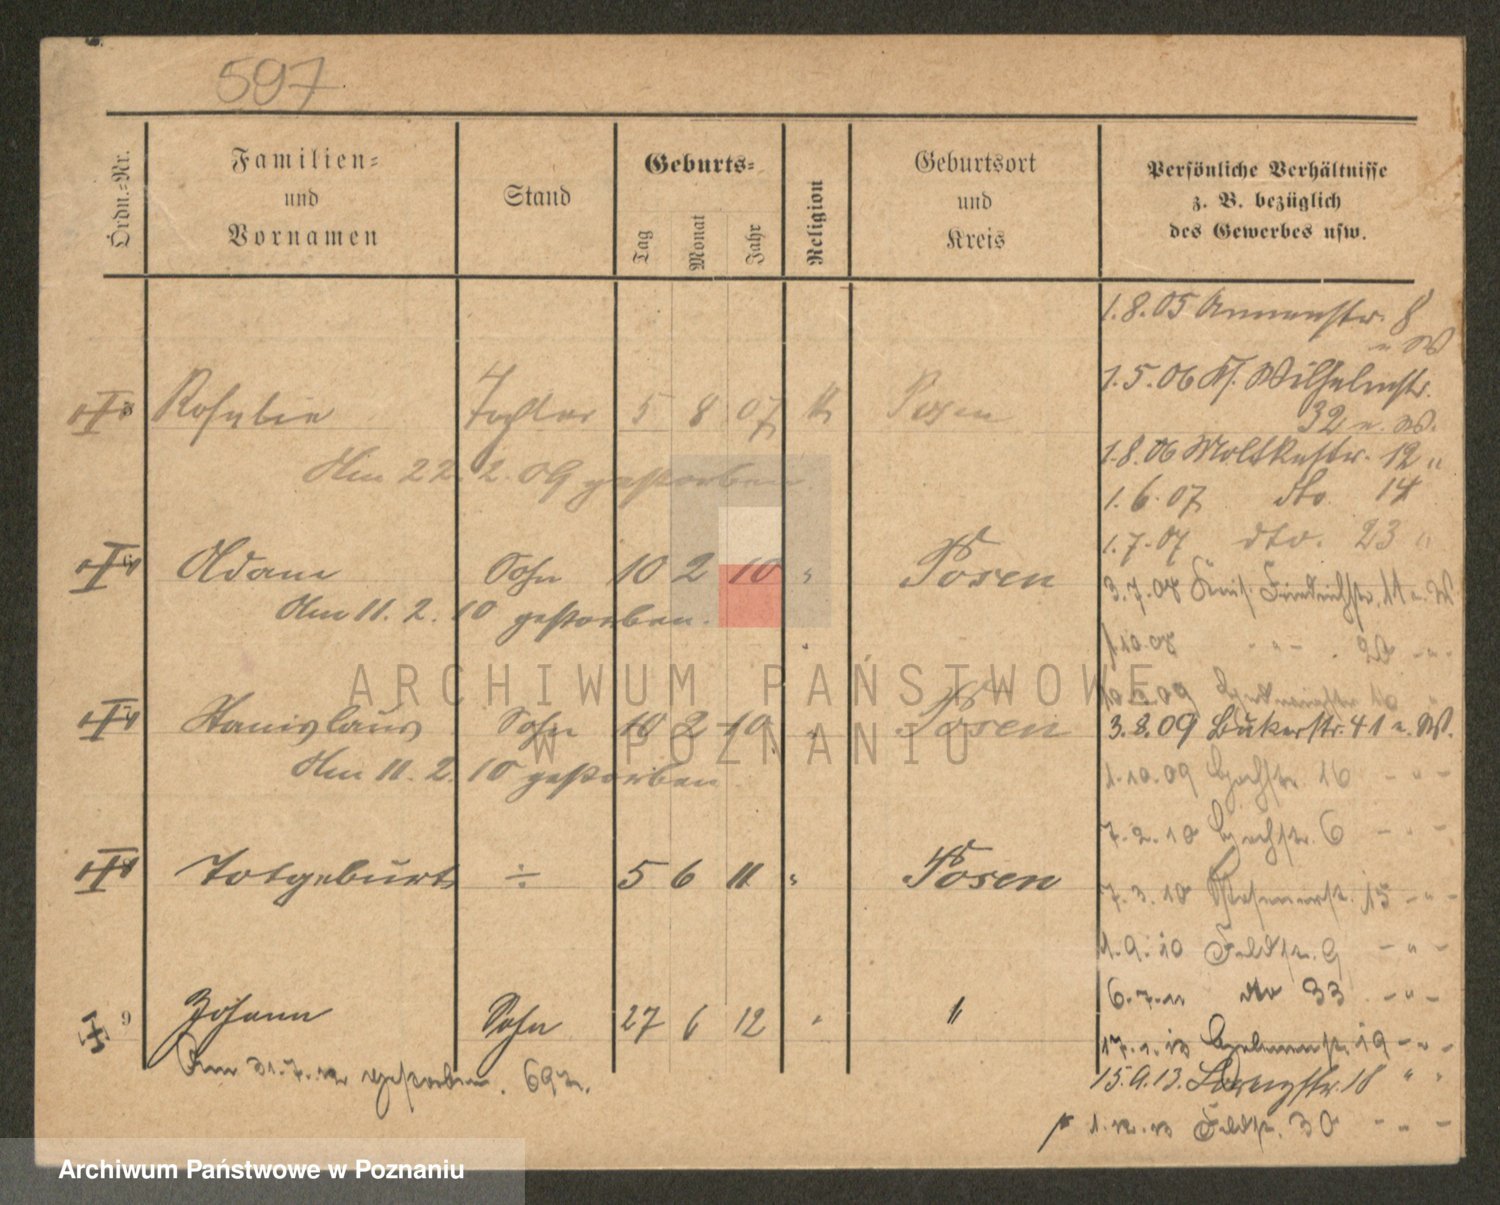 597
Ordn.=Nr.
Familien= und Vornamen
Stand
Geburts=
Tag
Monat
Jahr
Religion
Geburtsort und Kreis
Persönliche Verhältnisse
z. B. bezüglich
des Gewerbes usw.
1.8.05 Annenstr. 8
u W
1.5.06 Kf. Wilhelmstr.
32 u. W.
Rosalie Tochter 5 8 07 K Posen
1.8.06 Moltkestr. 12 "
Am 22.2.09 gestorben.
1.6.07 dto. 14
1.7.07 dto. 23 "
Adam Sohn 10 2 10 " Posen
3.7.08 Friedrichstr. 11 u. W
Am 11.2.10 gestorben.
1.10.08 " 20 - " -
ARCHIWUM PAŃSTWOWE
W POZNANIU
Stanislaus Sohn 10 2 10 " Posen
3.8.09 Bukerstr. 41 u. W.
Am 11.2.10 gestorben
1.10.09 16 - " -
7.2.10 6 - " -
Totgeburt ÷ 5 6 11 " Posen
7.3.10 15 - " -
1.9.10 Feldstr. 9 - " -
6.7.11 dto 33 - " -
9 Johann Sohn 27 6 12 " "
17.1.13 19 - " -
Am 31.7.12 gestorben. 692.
15.9.13. Lorenzstr. 18 " "
1.12.13 Feldstr. 30 - " -
Archiwum Państwowe w Poznaniu